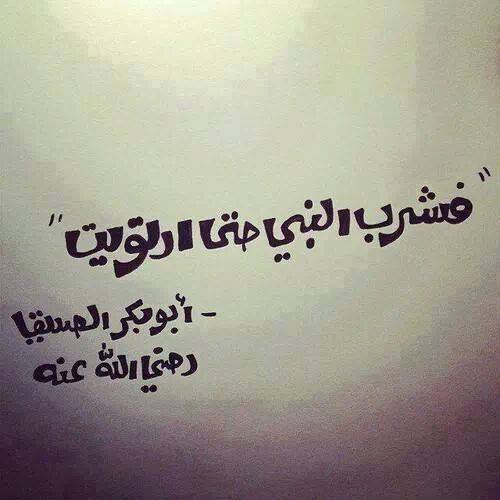 "فشرب النبي حتى ارتويت"
- أبو بكر الصديق
رضي الله عنه